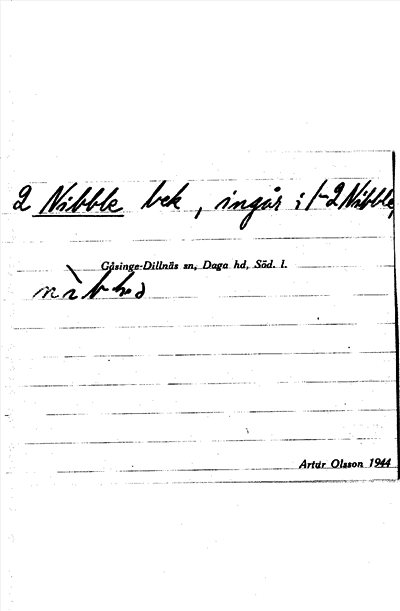 2 Nibble bek, ingår i 1-2 Nibble,
Gåsinge-Dillnäs sn, Daga hd, Söd. l.
Artur Olsson 1944